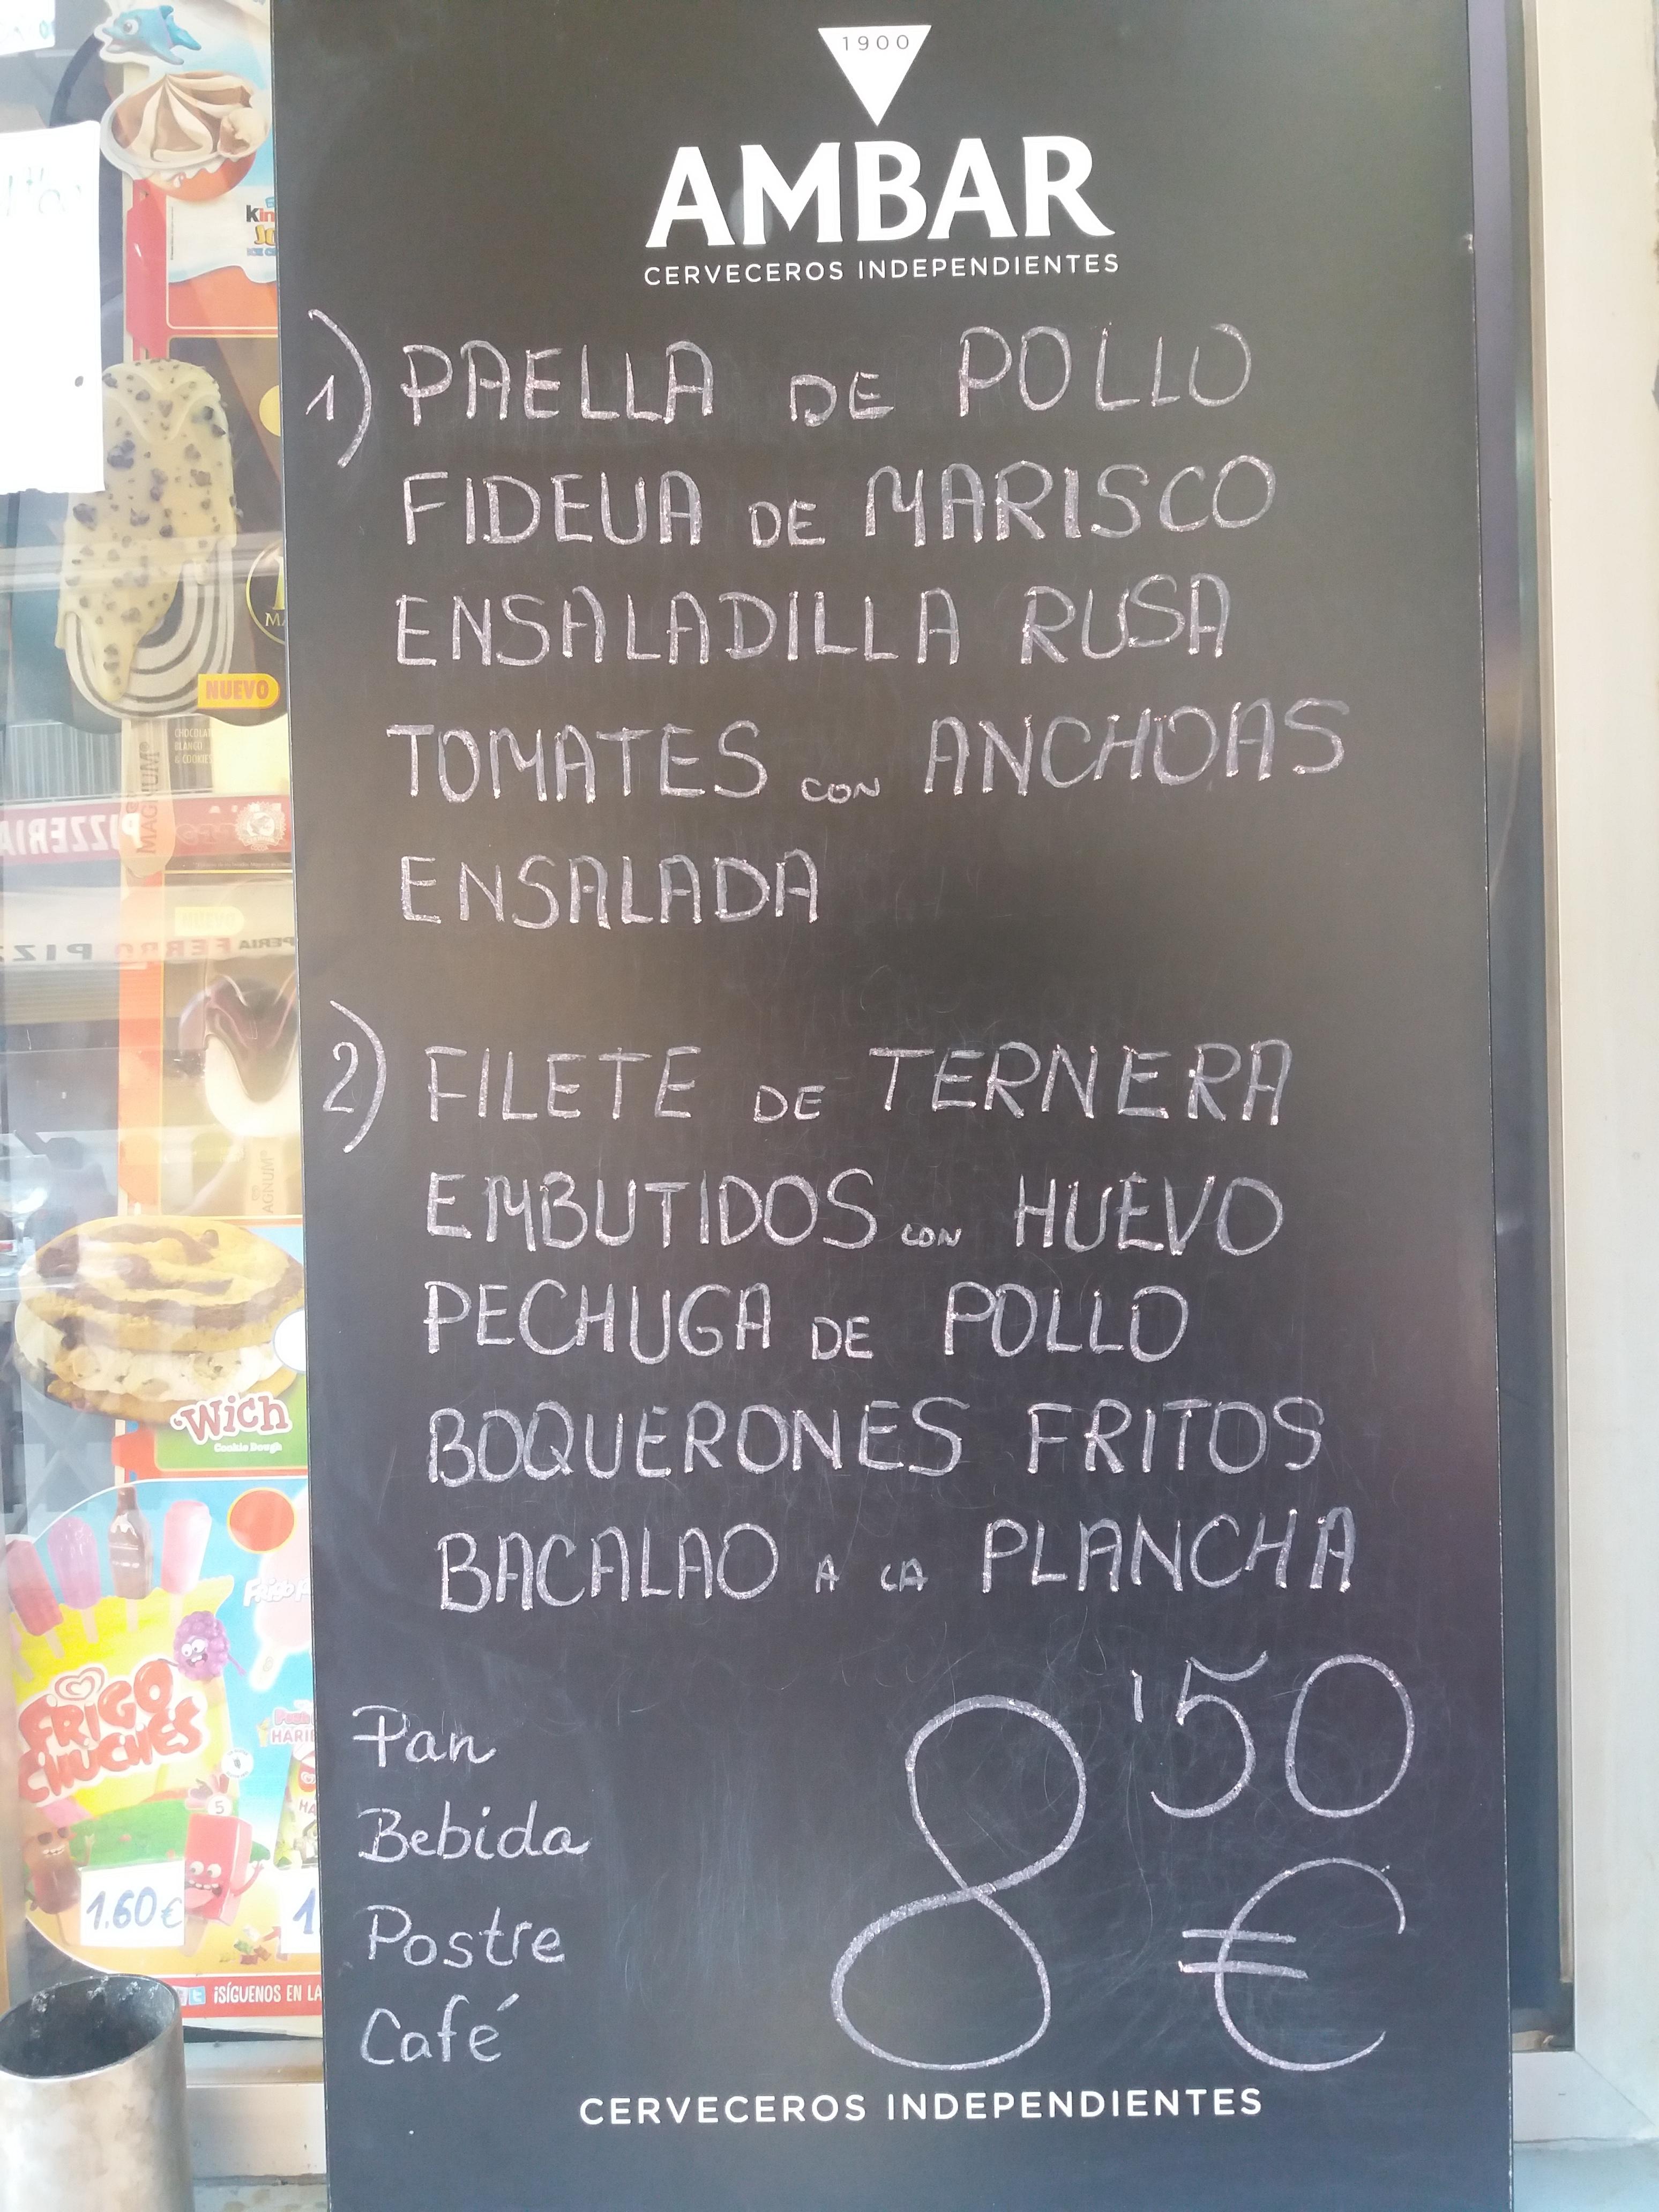 1900
AMBAR
CERVECEROS INDEPENDIENTES
1) PAELLA DE POLLO
FIDEUA DE MARISCO
ENSALADILLA RUSA
TOMATES CON ANCHOAS
ENSALADA
2) FILETE DE TERNERA
EMBUTIDOS CON HUEVO
PECHUGA DE POLLO
BOQUERONES FRITOS
BACALAO A LA PLANCHA
8'50 €
Pan
Bebida
Postre
Café
CERVECEROS INDEPENDIENTES
NUEVO
BLANCO
& COOKIES
MAGNUM
PIZZERIA
Wich
Cookie Dough
FRIGO
CHUCHES
1.60€
¡SÍGUENOS EN LA